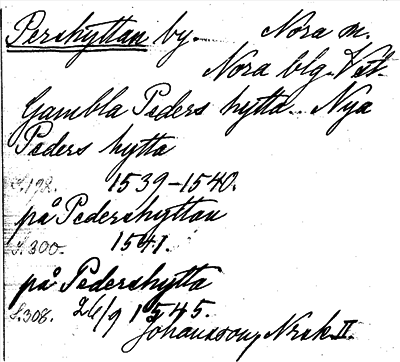 Pershyttan by. Nora m.
Nora blg. Vstl.
Gambla Peders hytta. Nya
Peders hytta
S.198. 1539-1540.
på Pedershyttan
S.300. 1541.
på Pedershytta
S.308. 26/9 1545.
Johansson, Nrsk II.